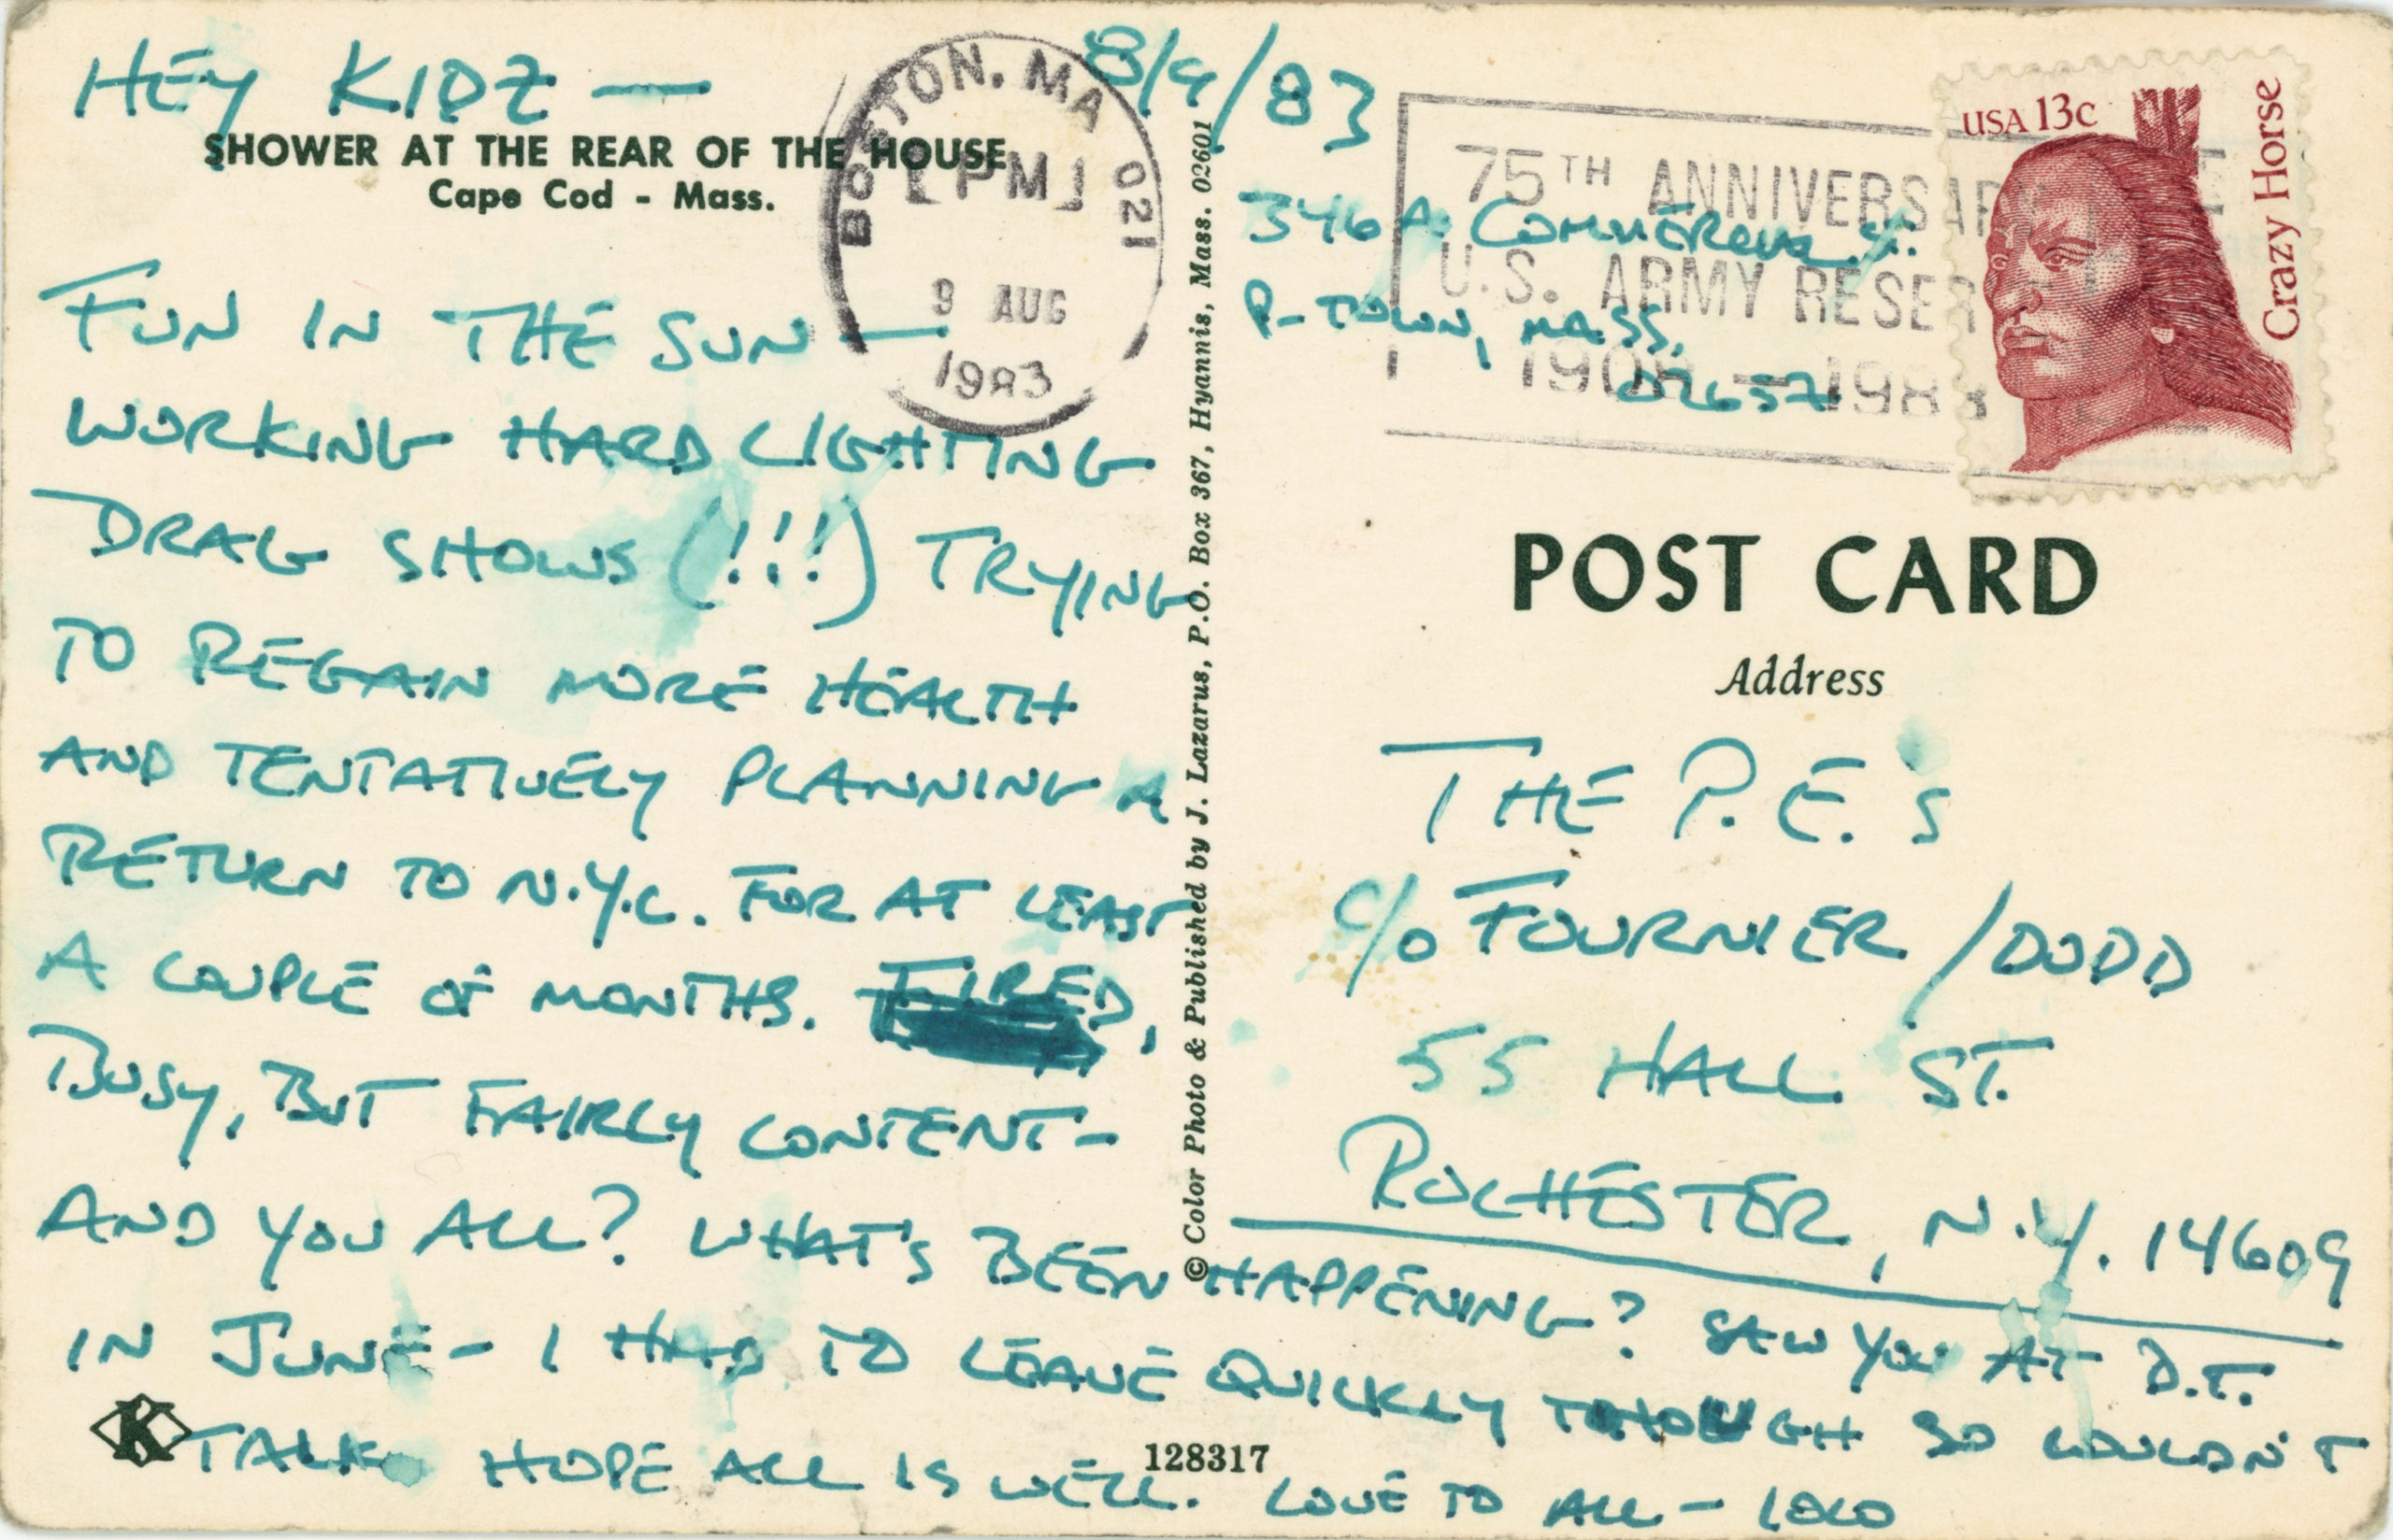 HEY KIDZ — 8/9/83
SHOWER AT THE REAR OF THE HOUSE
Cape Cod - Mass.
FUN IN THE SUN —
WORKING HARD LIGHTING
DRAG SHOWS (!!!) TRYING
TO REGAIN MORE HEALTH
AND TENTATIVELY PLANNING A
RETURN TO N.Y.C. FOR AT LEAST
A COUPLE OF MONTHS. TIRED,
BUSY, BUT FAIRLY CONTENT -
AND YOU ALL? WHAT'S BEEN HAPPENING? SAW YOU AT D.T.
IN JUNE - I HAD TO LEAVE QUICKLY THOUGH SO COULDN'T
TALK. HOPE ALL IS WELL. LOVE TO ALL - LOLO
K
128317
© Color Photo & Published by J. Lazarus, P.O. Box 367, Hyannis, Mass. 02601
BOSTON, MA 021
[PM]
9 AUG
1983
75TH ANNIVERSARY
U.S. ARMY RESER
1908 - 1983
USA 13c
Crazy Horse
346A COMMERCIAL ST.
P-TOWN, MASS.
02657
POST CARD
Address
THE P.E.'S
C/O FOURNIER/DODD
55 HALL ST.
ROCHESTER, N.Y. 14609